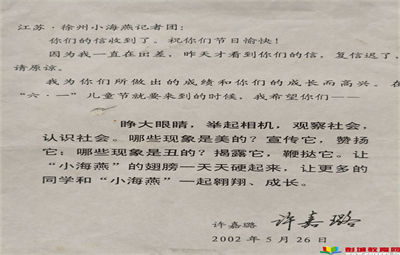 江苏·徐州小海燕记者团:
你们的信收到了。祝你们节日愉快!
因为我一直在出差,昨天才看到你们的信,复信迟了,
请原谅。
我为你们所做出的成绩和你们的成长而高兴。在
“六·一”儿童节就要来到的时候,我希望你们——
睁大眼睛,举起相机,观察社会,
认识社会。哪些现象是美的?宣传它,赞扬
它;哪些现象是丑的?揭露它,鞭挞它。让
“小海燕”的翅膀一天天硬起来,让更多的
同学和“小海燕”一起翱翔、成长。
许嘉璐 许嘉璐
2002年5月26日
彭城教育网